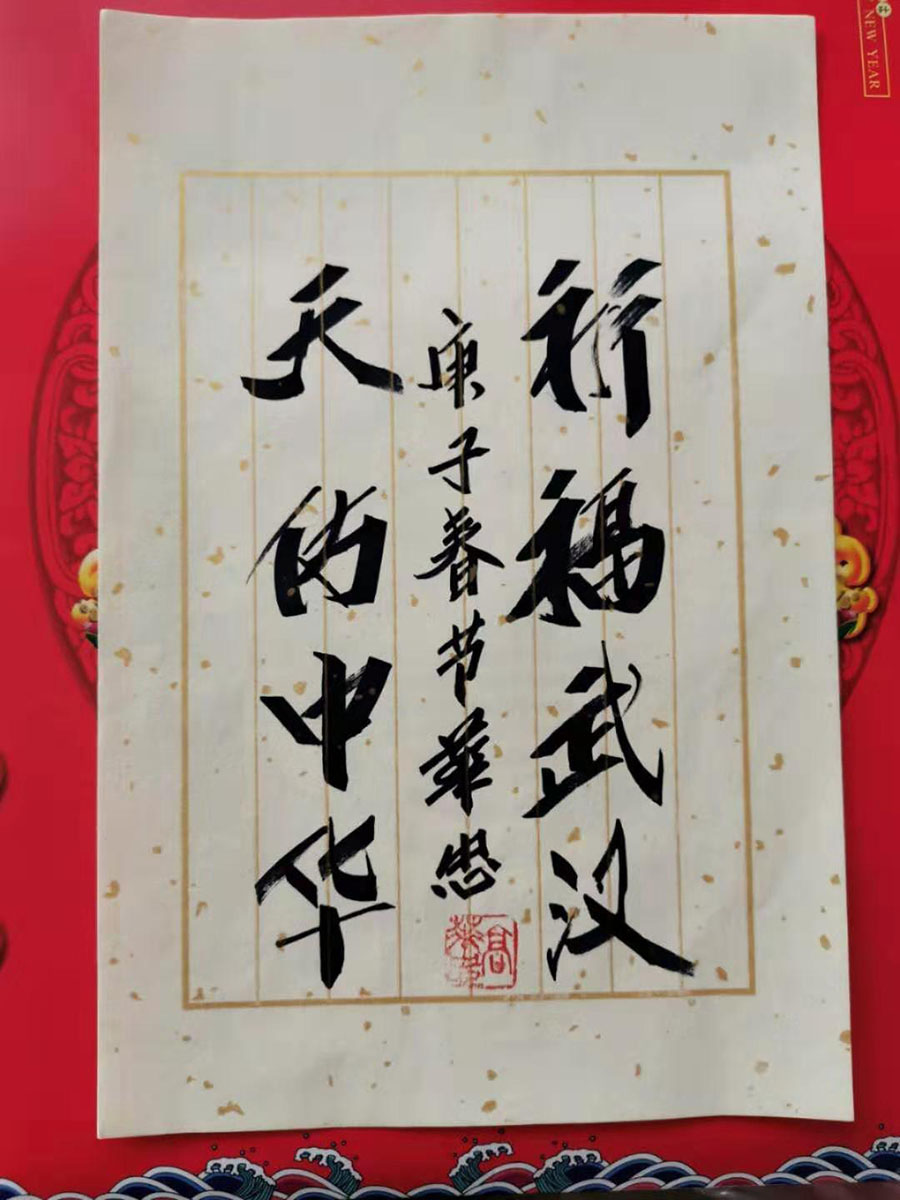 祈福武汉
庚子春节華忠
天佑中华
高
NEW YEAR